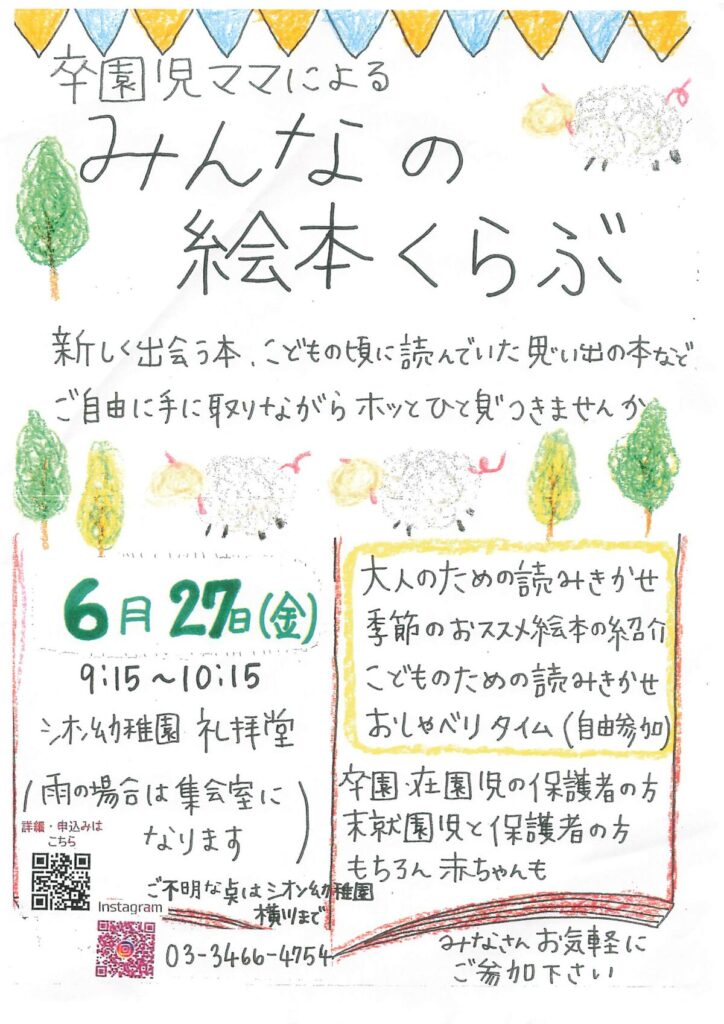 卒園児ママによる
みんなの
絵本くらぶ
新しく出会う本、こどもの頃に読んでいた思い出の本など
ご自由に手に取りながらホッとひと息つきませんか
6月27日(金)
9:15～10:15
シオン幼稚園 礼拝堂
(雨の場合は集会室に
なります)
詳細・申込みは
こちら
Instagram
ご不明な点はシオン幼稚園
横川まで
03-3466-4754
大人のための読みきかせ
季節のおススメ絵本の紹介
こどものための読みきかせ
おしゃべりタイム(自由参加)
卒園・在園児の保護者の方
未就園児と保護者の方
もちろん赤ちゃんも
みなさんお気軽に
ご参加下さい